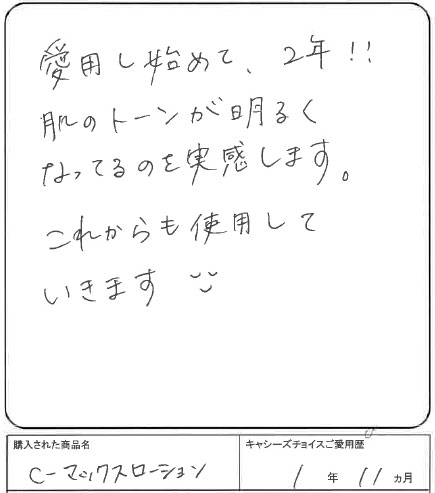 愛用し始めて、2年!!
肌のトーンが明るく
なってるのを実感します。
これからも使用して
いきます
購入された商品名
キャシーズチョイスご愛用歴
C-マックスローション
1年11ヵ月